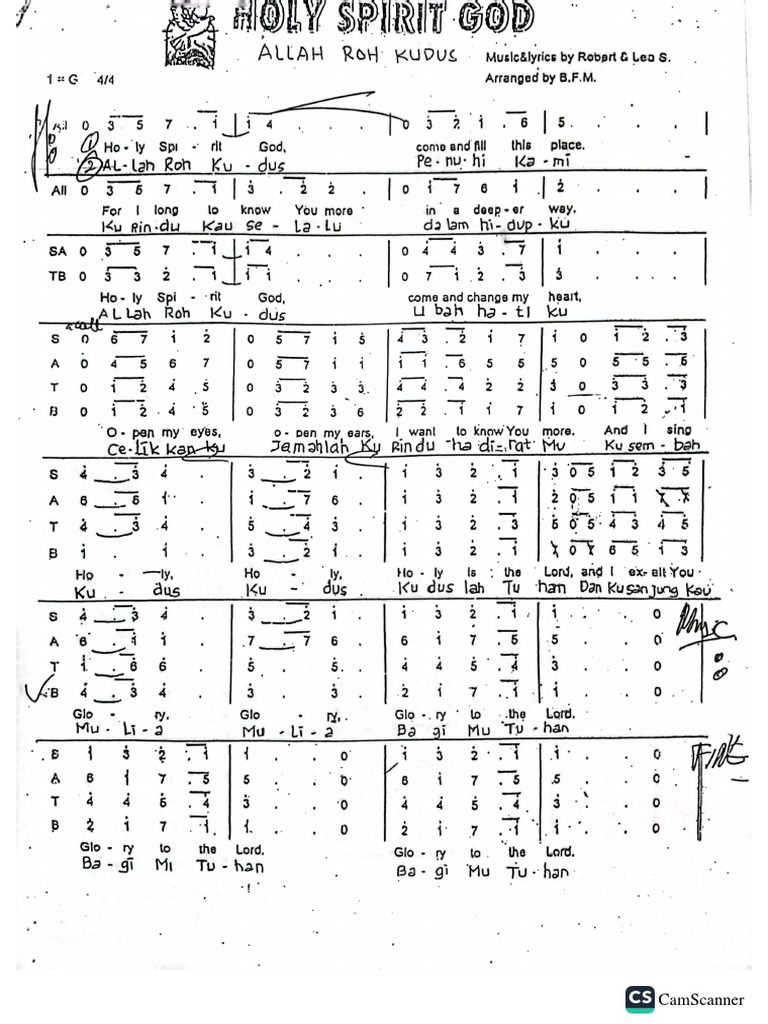 HOLY SPIRIT GOD
ALLAH ROH KUDUS
Music&lyrics by Robert & Lea S.
1 = G 4/4
Arranged by B.F.M.
0 3 5 7 . 1 | 1 4 . . . | 0 3 2 1 . 6 | 5 . . .
① Ho - ly Spi - rit God, come and fill this place.
② ALLah Roh Ku - dus Pe - nu - hi Ka - mi
All 0 3 5 7 . 1 | 3 . 2 2 . | 0 1 7 6 1 | 2 . . .
For I long to know You more in a deep - er way,
Ku Rin - du Kau Se - La - Lu dalam hi - dup - ku
SA 0 3 5 7 . 1 | 1 4 . . . | 0 4 4 3 . 7 | 1 . . .
TB 0 3 3 2 . 1 | 1 1 . . . | 0 7 1 2 . 3 | 3 . . .
Ho - ly Spi - rit God, come and change my heart,
ALLah Roh Ku - dus U bah ha - ti ku
S 0 6 7 1 2 | 0 5 7 1 5 | 4 3 . 2 1 7 | 1 0 1 2 . 3
A 0 4 5 6 7 | 0 5 7 1 1 | 1 1 . 6 5 5 | 5 0 5 5 . 5
T 0 1 2 4 5 | 0 3 2 3 3 | 4 4 . 4 2 2 | 3 0 3 3 . 3
B 0 1 2 4 5 | 0 3 2 3 6 | 2 2 . 1 1 7 | 1 0 1 2 . 1
O - pen my eyes, o - pen my ears, I want to know You more. And I sing
Ce - Lik kan ku Jamahlah Ku Rindu ha di - rat Mu Ku sem - bah
S 4 . 3 4 . | 3 . 2 1 . | 1 3 2 . 1 | 3 0 5 1 2 3 5
A 6 . 6 1 . | 1 . 7 6 . | 1 3 2 . 1 | 2 0 5 1 1
T 4 . 3 4 . | 5 . 4 3 . | 1 3 2 . 3 | 5 0 5 4 3 4 5
B 1 . 1 . | 3 . 2 1 . | 1 3 2 . 1 | 0 6 5 1 3
Ho - ly, Ho - ly, Ho - ly is the Lord, and I ex - alt You
Ku - dus Ku - dus Ku dus lah Tu han Dan Ku sanjung Kau
S 4 . 3 4 . | 3 . 2 1 . | 1 3 2 . 1 | 1 . . 0
A 6 . 1 1 . | 7 . 7 6 . | 6 1 7 . 5 | 5 . . 0
T 1 . 6 6 . | 5 . 5 . | 4 4 5 . 4 | 3 . . 0
B 4 . 3 4 . | 3 . 3 . | 2 1 7 . 1 | 1 . . 0
Glo - ry, Glo - ry, Glo - ry to the Lord.
Mu - Li - a Mu - Li - a Ba gi Mu Tu - han
S 1 3 2 . 1 | 1 . . 0 | 1 3 2 . 1 | 1 . . 0
A 6 1 7 . 5 | 5 . . 0 | 6 1 7 . 5 | 5 . . 0
T 4 4 5 . 4 | 3 . . 0 | 4 4 5 . 4 | 3 . . 0
B 2 1 7 . 1 | 1 . . 0 | 2 1 7 . 1 | 1 . . 0
FINE
Glo - ry to the Lord. Glo - ry to the Lord.
Ba - gi MI Tu - han Ba - gi Mu Tu - han
CS CamScanner